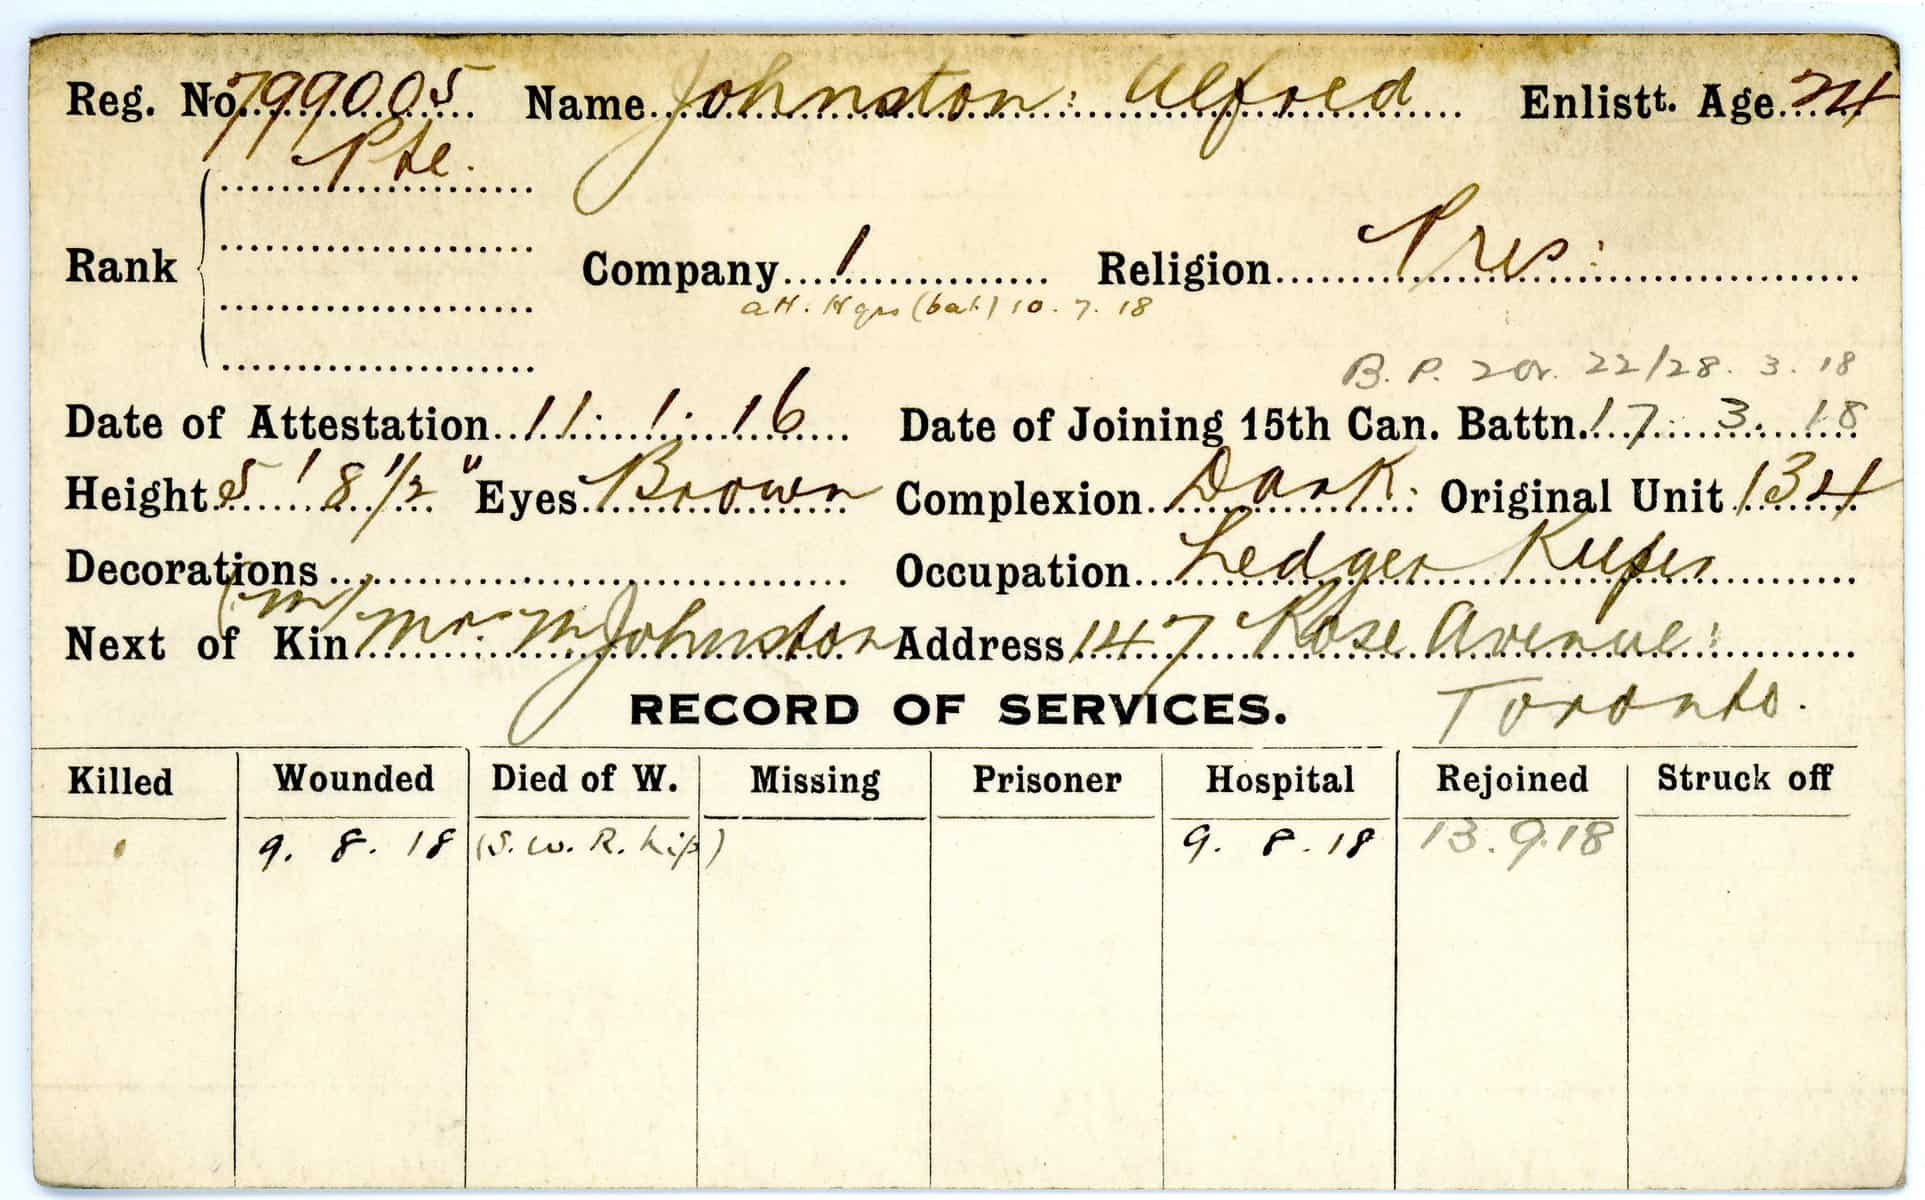 Reg. No. 799005 Name Johnston: Alfred Enlistt. Age 24
Pte.
Rank Company 1 Religion Pres:
att. Hqrs (bat) 10.7.18
B. P. 2 Or. 22/28. 3. 18
Date of Attestation 11. 1. 16 Date of Joining 15th Can. Battn. 17. 3. 18
Height 5' 8 1/2" Eyes Brown Complexion Dark: Original Unit 134
Decorations Occupation Ledger Keeper
(m)
Next of Kin Mr. M Johnston Address 147 Rose Avenue:
RECORD OF SERVICES. Toronto.
Killed Wounded Died of W. Missing Prisoner Hospital Rejoined Struck off
9. 8. 18 (S. W. R. Hip) 9. 8. 18 13. 9. 18